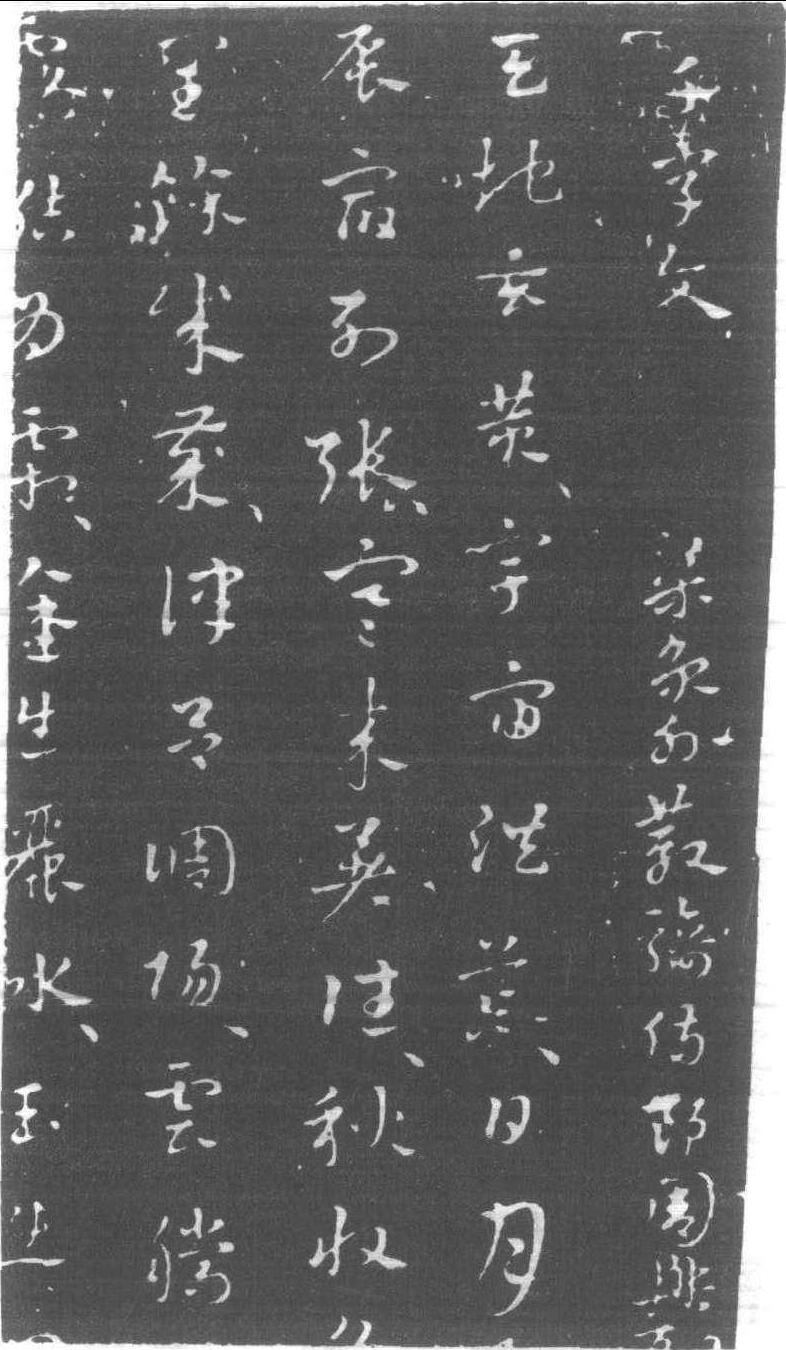 千字文 梁員外散騎侍郎周興嗣
天地玄黃宇宙洪荒日月
辰宿列張寒來暑往秋收
閏餘成歲律呂調陽雲騰
露結為霜金生麗水玉出